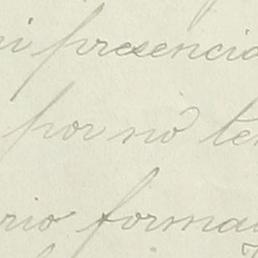 mi presencia
por no te
rio forma